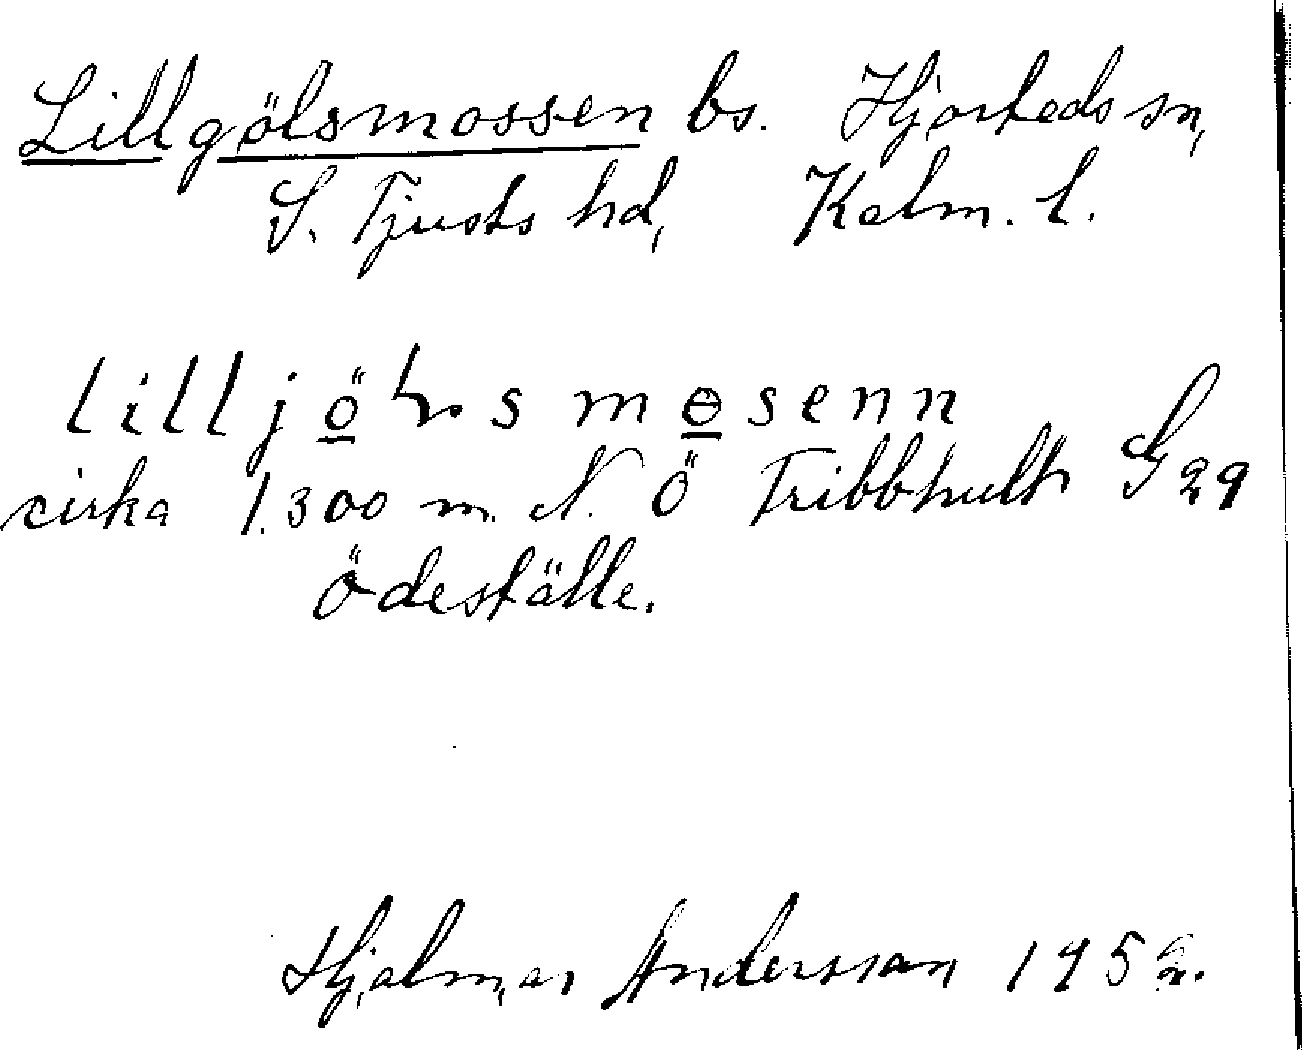 Lillgölsmossen bs. Hjorteds sn,
S. Tjusts hd, Kalm. l.
lilljöɫsmɵsenn
cirka 1.300 m. N. Ö Tribbhult G 29
ödeställe.
Hjalmar Andersson 1952.